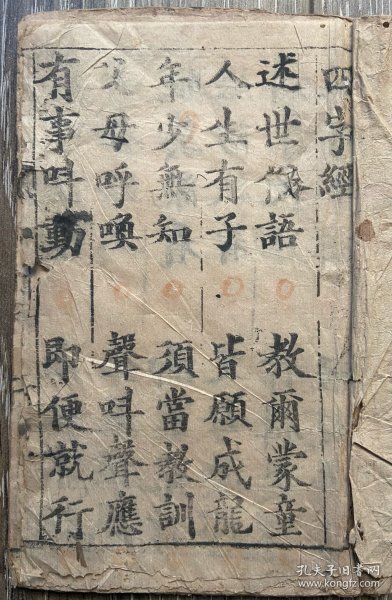 四字經
述世俗語 教爾蒙童
人生有子 皆願成龍
年少無知 須當教訓
父母呼喚 聲呌聲應
有事呌動 即便就行
孔夫子旧书网